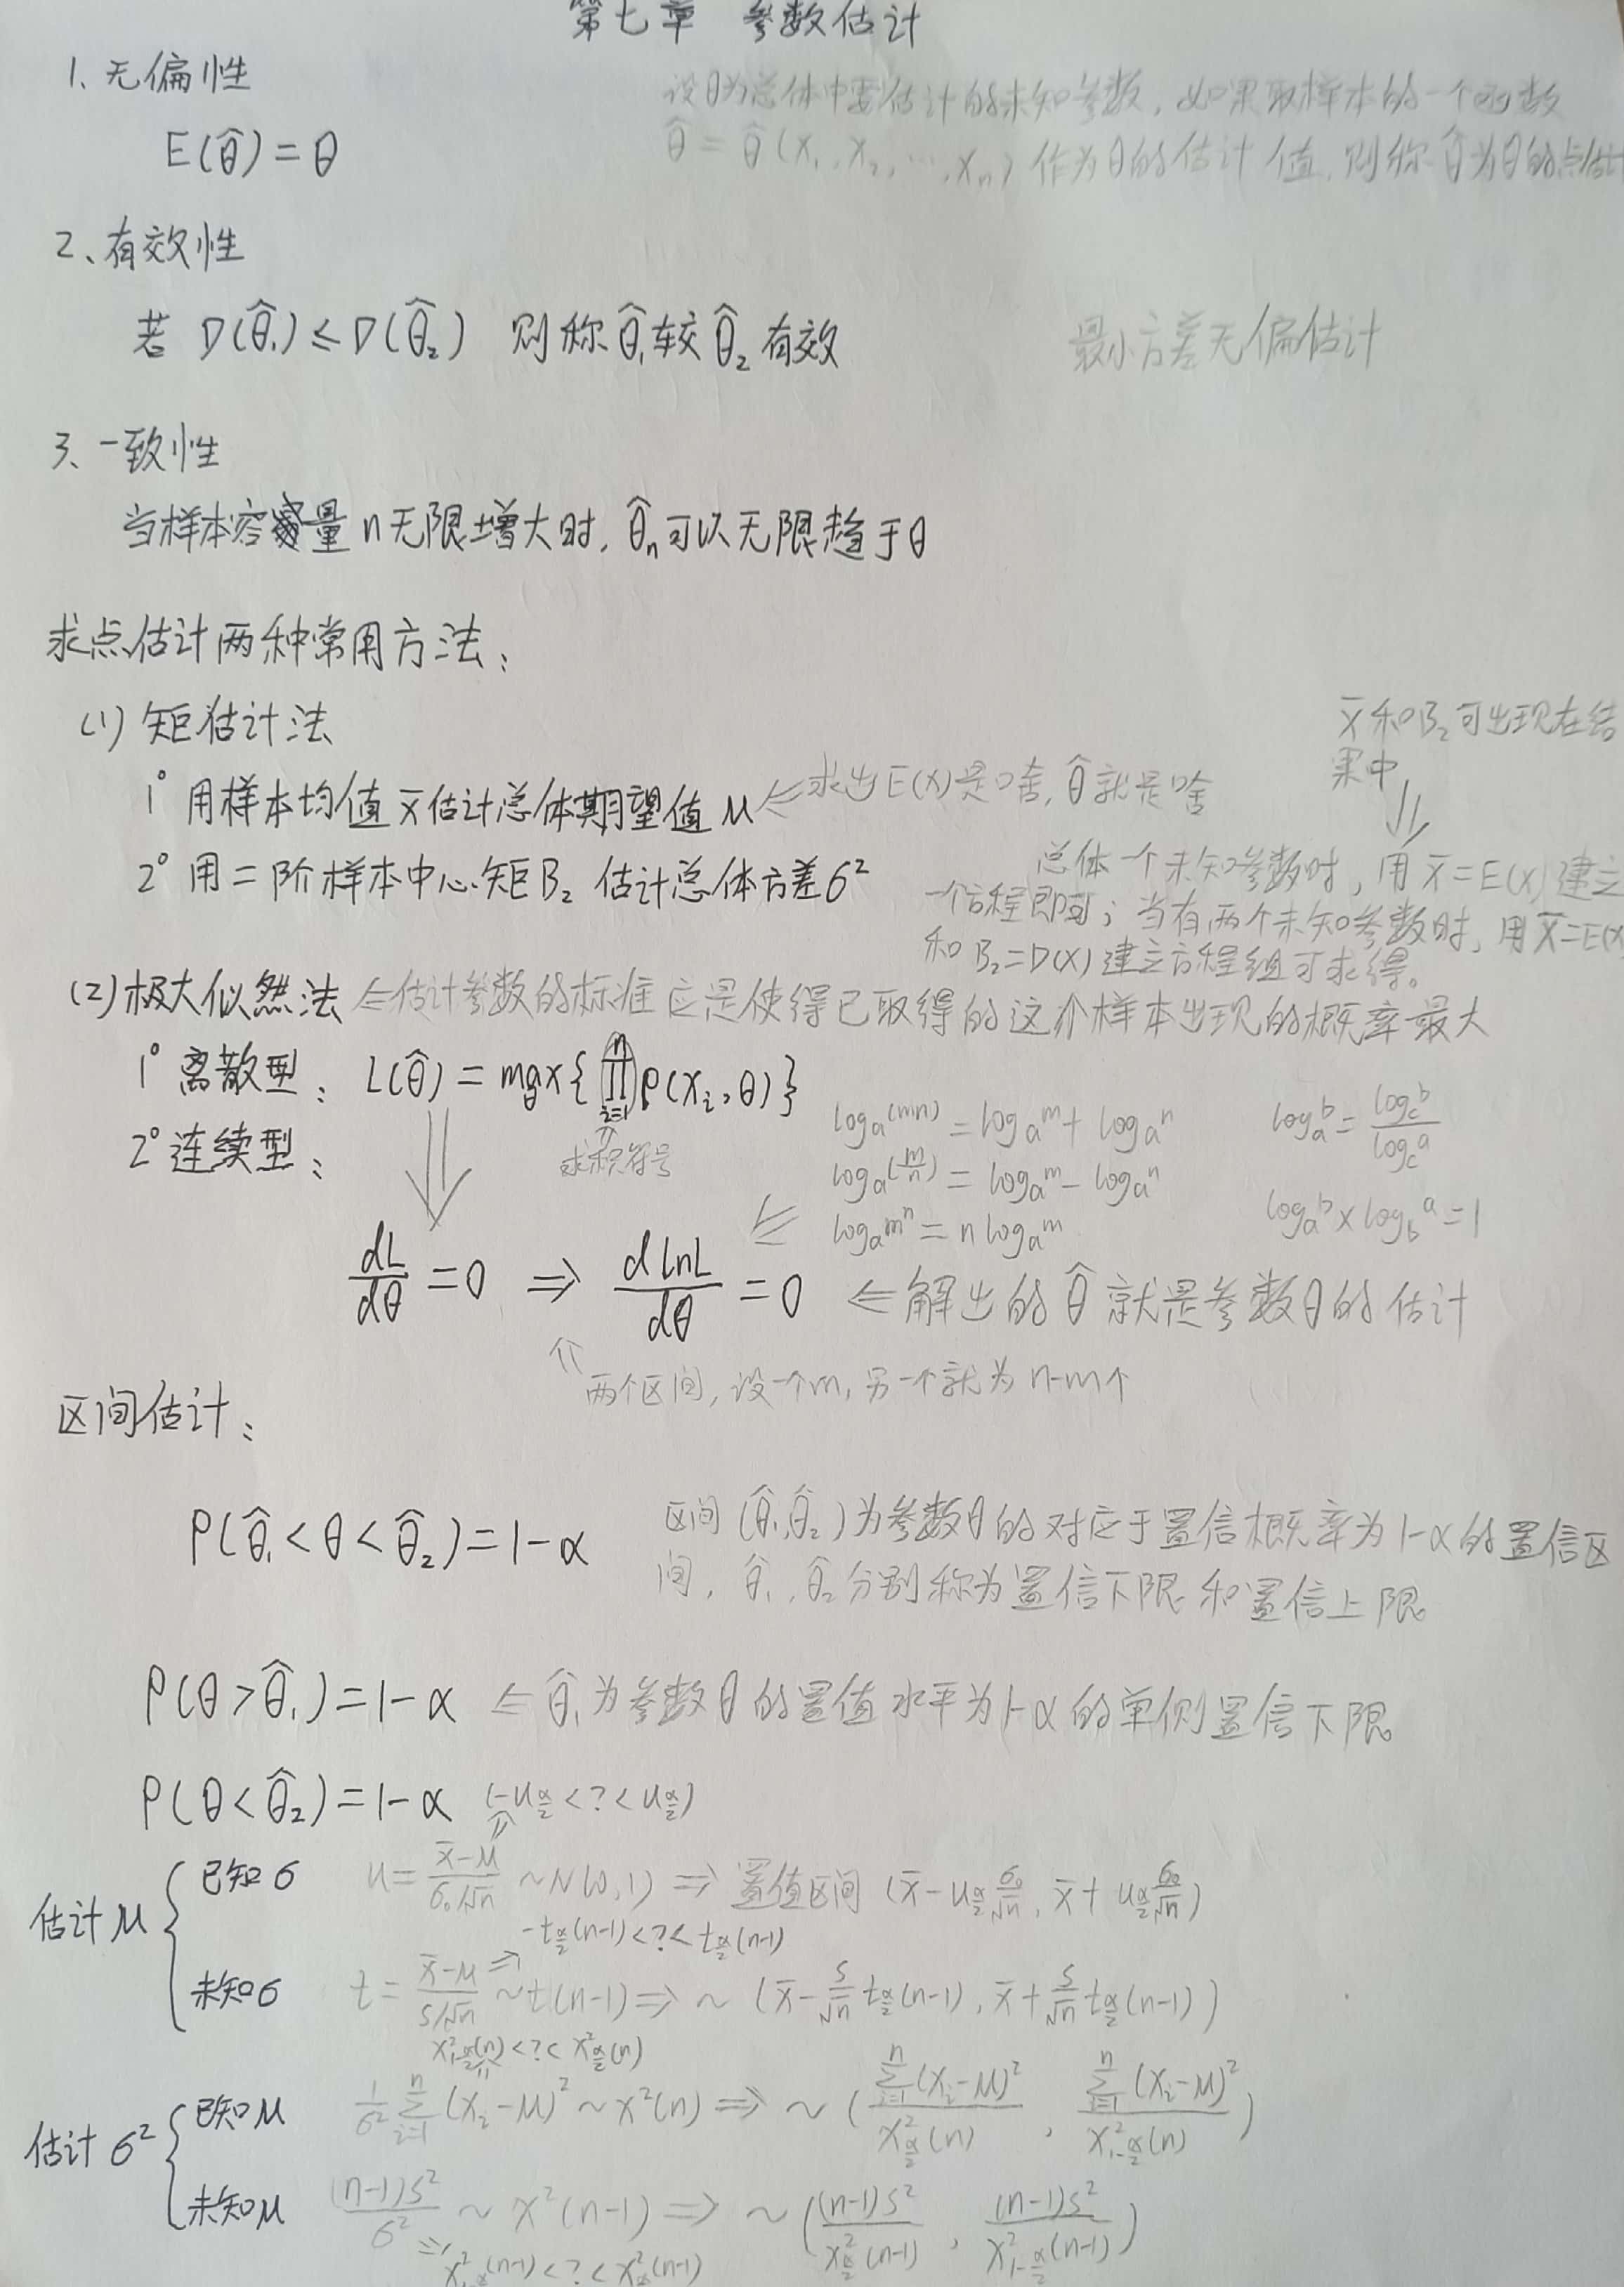 第七章 参数估计
1、无偏性
设θ为总体中要估计的未知参数，如果取样本的一个函数
E(θ̂)=θ
θ̂=θ̂(X₁,X₂,…,Xₙ)作为θ的估计值，则称θ̂为θ的点估计
2、有效性
若 D(θ̂₁)≤D(θ̂₂) 则称θ̂₁较θ̂₂有效
最小方差无偏估计
3、一致性
当样本容量n无限增大时，θ̂ₙ可以无限趋于θ
求点估计两种常用方法：
(1) 矩估计法
x̄和B₂可出现在结
果中
1° 用样本均值x̄估计总体期望值μ ⇐求出E(X)是啥，θ̂就是啥
2° 用二阶样本中心矩B₂估计总体方差σ²
总体一个未知参数时，用x̄=E(X)建立
一个方程即可；当有两个未知参数时，用x̄=E(X
和B₂=D(X)建立方程组可求得。
(2) 极大似然法 ⇐估计参数的标准应是使得已取得的这个样本出现的概率最大
1° 离散型： L(θ̂)=max_θ{∏_{i=1}^{n}p(xᵢ,θ)}
2° 连续型：
求积符号
logₐ(mn)=logₐm+logₐn
logₐ(m/n)=logₐm-logₐn
logₐmⁿ=n logₐm
logₐb=log_c b/log_c a
logₐb×log_b a=1
dL/dθ=0 ⇒ d lnL/dθ=0 ⇐解出的θ̂就是参数θ的估计
⇑两个区间，设一个m，另一个就为n-m个
区间估计：
P(θ̂₁<θ<θ̂₂)=1-α
区间(θ̂₁,θ̂₂)为参数θ的对应于置信概率为1-α的置信区
间，θ̂₁,θ̂₂分别称为置信下限和置信上限
P(θ>θ̂₁)=1-α ⇐θ̂₁为参数θ的置值水平为1-α的单侧置信下限
P(θ<θ̂₂)=1-α (-u_{α/2}<?<u_{α/2})
估计μ
已知σ u=(x̄-μ)/(σ₀/√n)~N(0,1) ⇒ 置值区间 (x̄-u_{α/2}σ₀/√n, x̄+u_{α/2}σ₀/√n)
-t_{α/2}(n-1)<?<t_{α/2}(n-1)
未知σ t=(x̄-μ)/(s/√n)~t(n-1) ⇒ ~ (x̄-(s/√n)t_{α/2}(n-1), x̄+(s/√n)t_{α/2}(n-1))
χ²_{1-α/2}(n)<?<χ²_{α/2}(n)
估计σ²
已知μ (1/σ²)∑_{i=1}^{n}(xᵢ-μ)²~χ²(n) ⇒ ~ (∑_{i=1}^{n}(xᵢ-μ)²/χ²_{α/2}(n), ∑_{i=1}^{n}(xᵢ-μ)²/χ²_{1-α/2}(n))
未知μ (n-1)s²/σ² ~ χ²(n-1) ⇒ ~ ((n-1)s²/χ²_{α/2}(n-1), (n-1)s²/χ²_{1-α/2}(n-1))